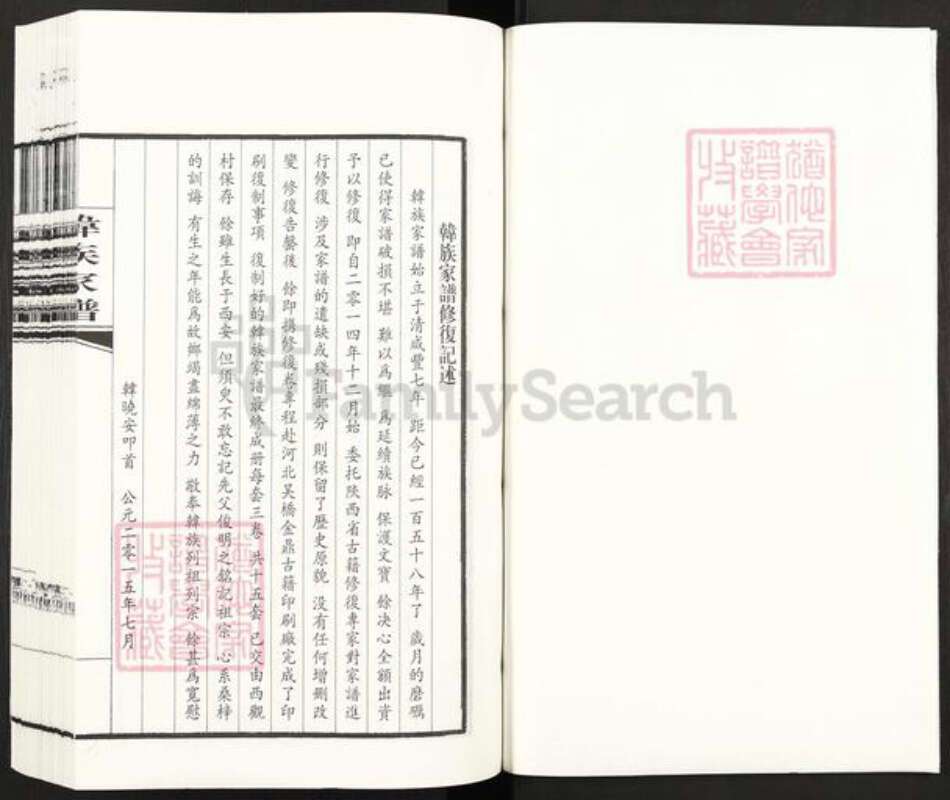 韓族家譜修復記述
韓族家譜始立于清咸豐七年 距今已經一百五十八年了 歲月的磨礪
已使得家譜破損不堪 難以爲繼 爲延續族脉 保護文寶 餘决心全額出資
予以修復 即自二零一四年十二月始 委托陝西省古籍修復專家對家譜進
行修復 涉及家譜的遺缺或殘損部分 則保留了歷史原貌 没有任何增删改
變 修復告罄後 餘即携修復卷專程赴河北吴橋金鼎古籍印刷廠完成了印
刷復制事項 復制好的韓族家譜最終成册每套三卷 共十五套 已交由西觀
村保存 餘雖生長于西安 但須臾不敢忘記先父俊明之銘記祖宗 心系桑梓
的訓誨 有生之年能爲故鄉竭盡綿薄之力 敬奉韓族列祖列宗 餘甚爲寬慰
韓曉安叩首 公元二零一五年七月
韓族家譜
猶他家
譜學會
收藏
猶他家
譜學會
收藏
FamilySearch